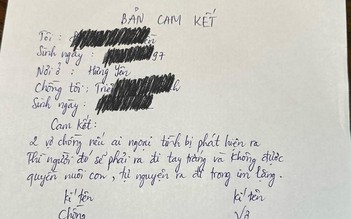 BẢN CAM KẾT
Tôi :
Sinh ngày : 97
Nơi ở : Hưng Yên
Chồng tôi : Triệ
Sinh ngày :
Cam kết :
2 vợ chồng nếu ai ngoại tình bị phát hiện ra
Thì người đó sẽ phải ra đi tay trắng và không được
quyền nuôi con , tự nguyện ra đi trong im lặng.
kí tên kí tên
Chồng Vợ